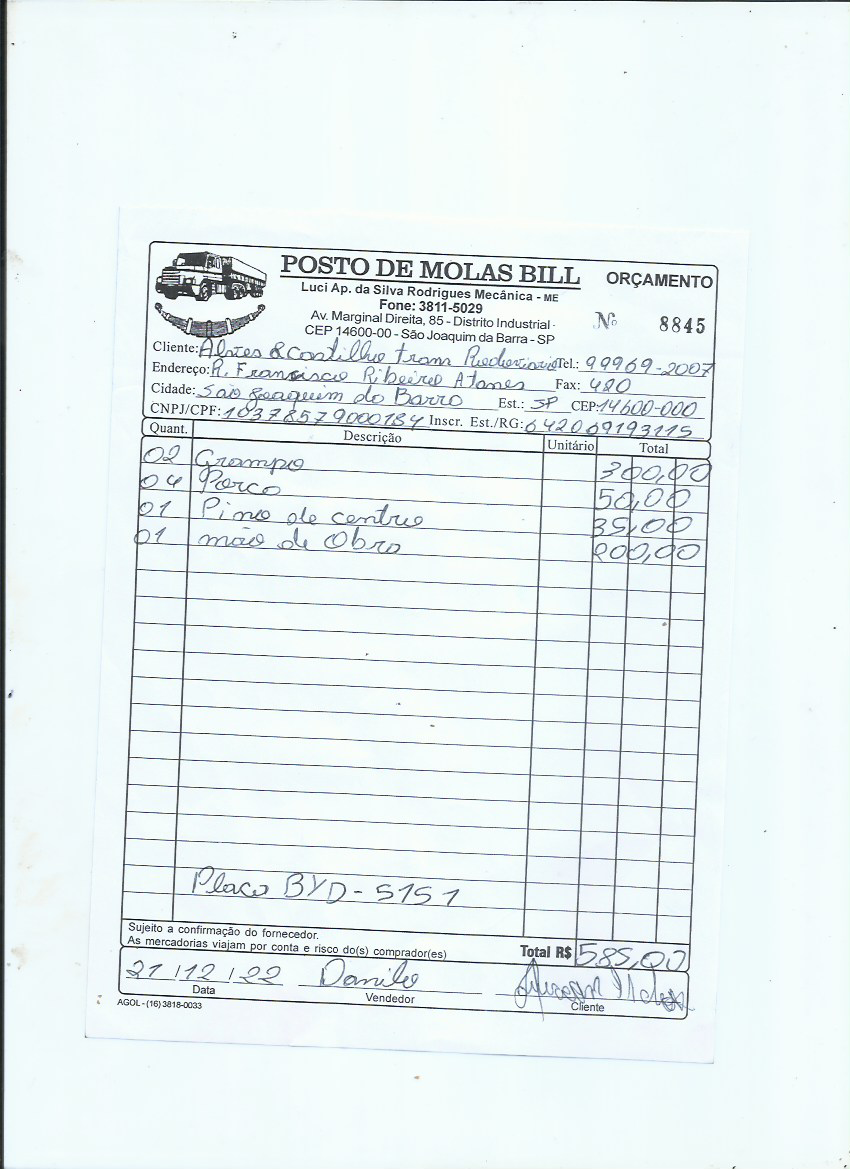 POSTO DE MOLAS BILL
ORÇAMENTO
Luci Ap. da Silva Rodrigues Mecânica - ME
Fone: 3811-5029
Av. Marginal Direita, 85 - Distrito Industrial -
CEP 14600-00 - São Joaquim da Barra - SP
Nº 8845
Cliente: Alves & Castilho Trans Rodoviario Tel.: 99969-2007
Endereço: R. Francisco Ribeiro Fax: 480
Cidade: São Joaquim da Barra Est.: SP CEP: 14600-000
CNPJ/CPF: 10378579000184 Inscr. Est./RG: 642069193115
Quant. Descrição Unitário Total
02 Grampo 300,00
04 Porca 50,00
01 Pino de centro 35,00
01 mão de Obra 200,00
Placa BYD-5151
Sujeito a confirmação do fornecedor.
As mercadorias viajam por conta e risco do(s) comprador(es)
Total R$ 585,00
21/12/22 Danilo
Data Vendedor Cliente
AGOL - (16) 3818-0033